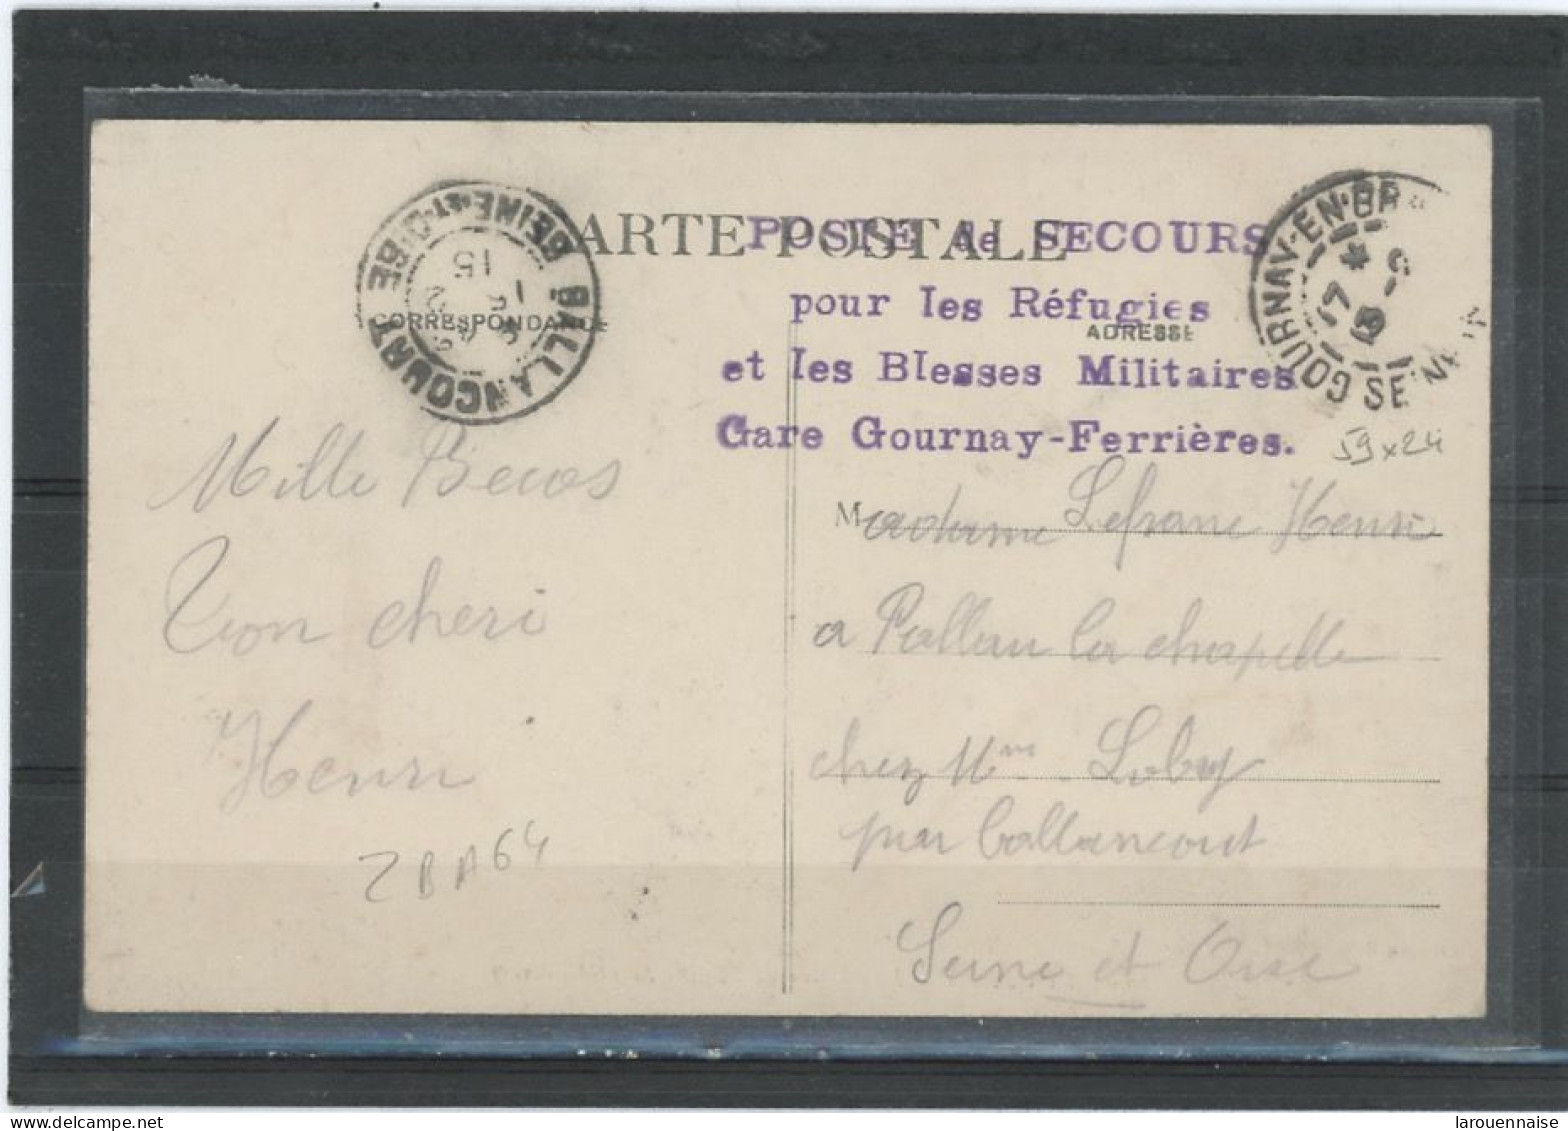 CARTE POSTALE
POSTE de SECOURS
pour les Réfugies
et les Blesses Militaires
Gare Gournay-Ferrières.
BALLANCOURT
SEINE-ET-OISE
15
GOURNAY-EN-BR
SEINE
17
CORRESPONDANCE
ADRESSE
59x24
Mille Becos
Ton cheri
Henri
ZBA64
Madame Lefranc Henri
a Pallau la chapelle
chez Mme Lobry
par ballancourt
Seine et Oise
larouennaise